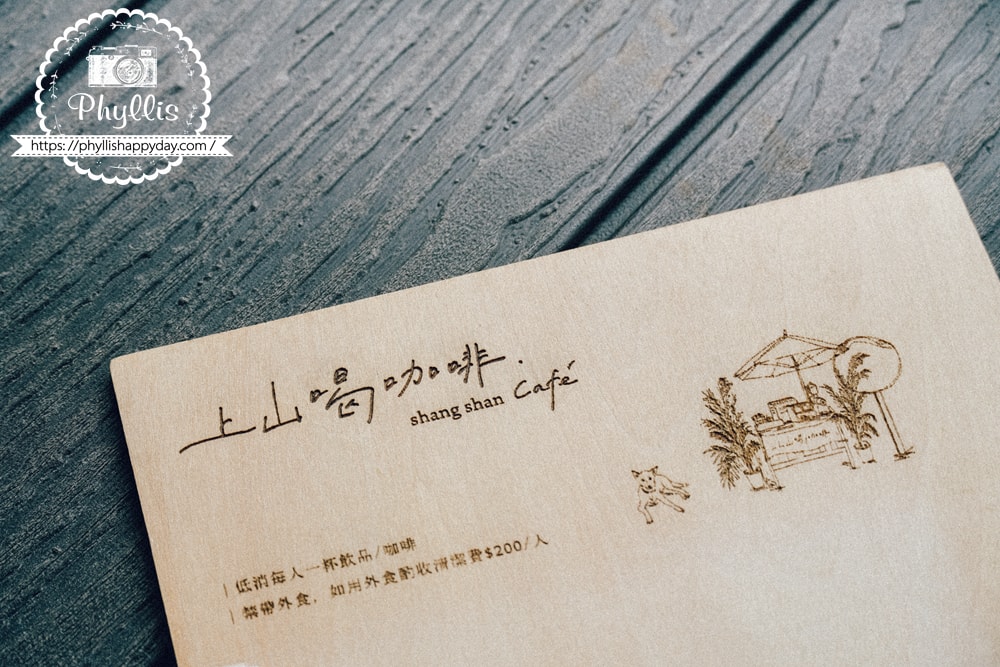 Phyllis
https://phyllishappyday.com/
上山喝咖啡.
shang shan Café
|低消每人一杯飲品/咖啡
|禁帶外食，如用外食酌收清潔費$200/人